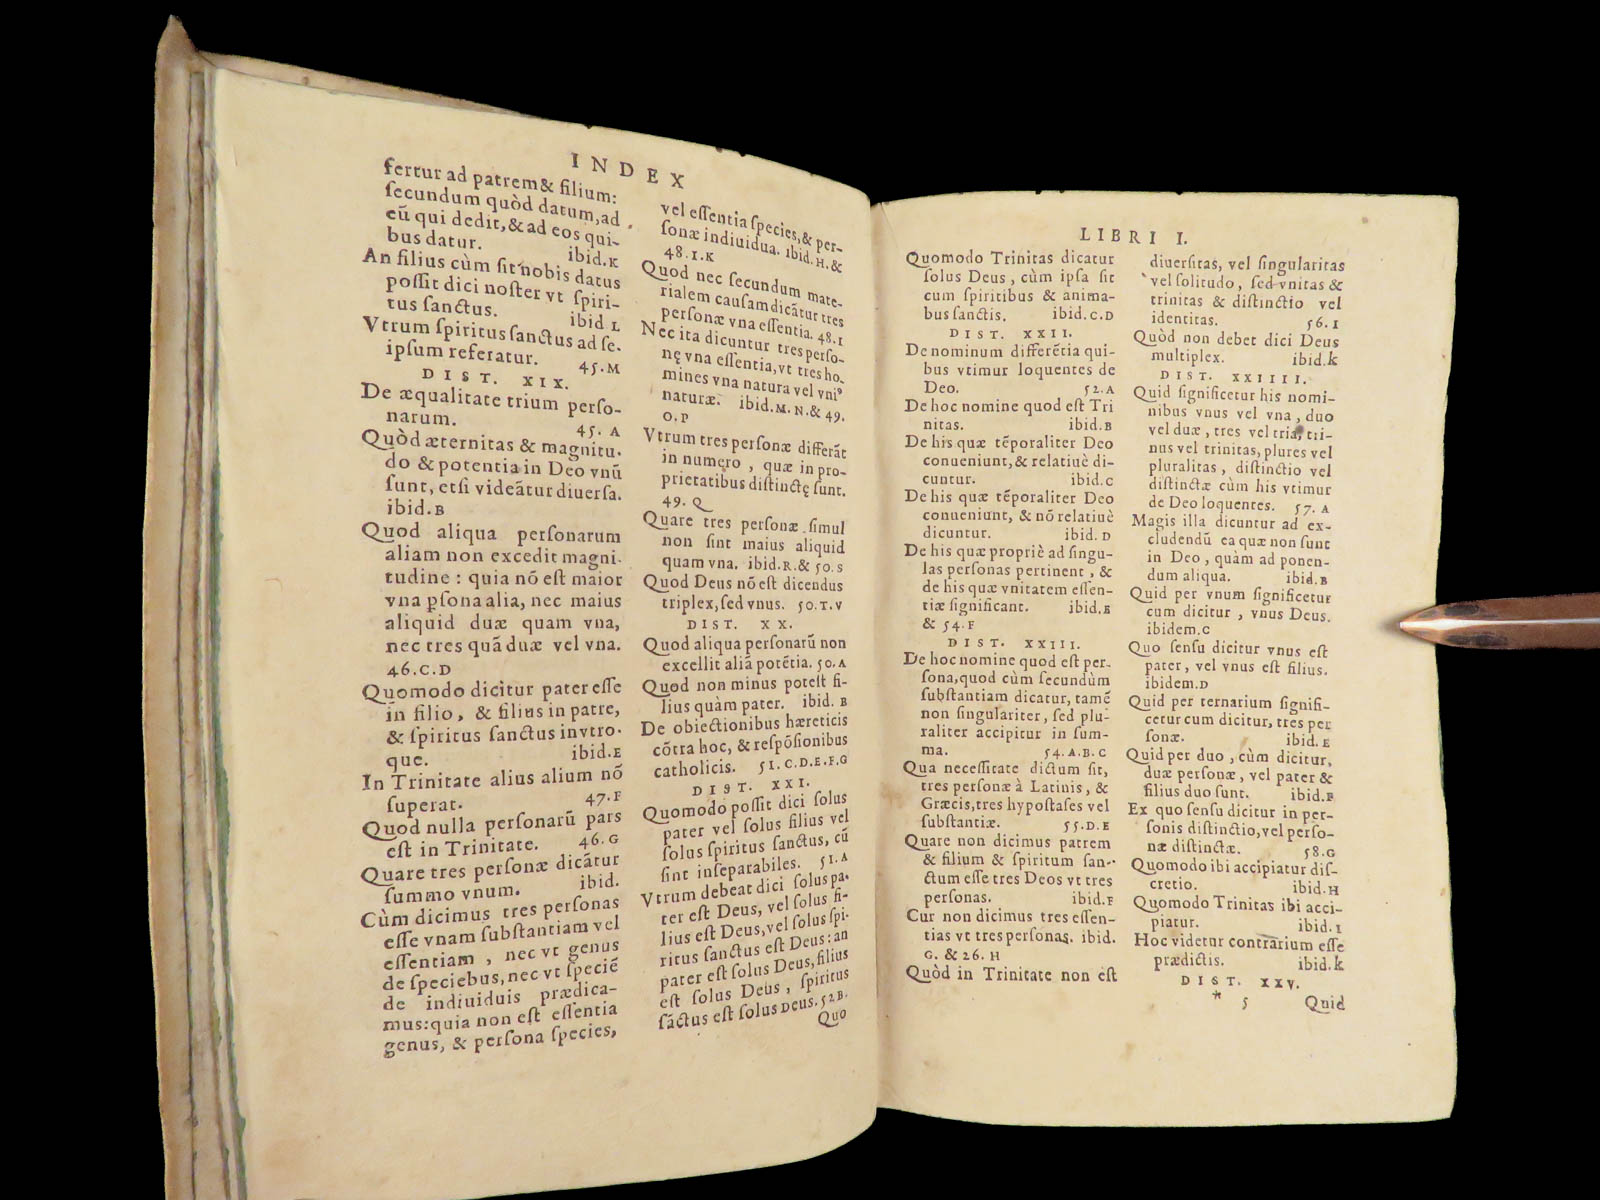 INDEX
fertur ad patrem & filium:
ſecundum quòd datum, ad
eū qui dedit, & ad eos qui-
bus datur. ibid. K
An filius cùm ſit nobis datus
poſſit dici noſter vt ſpiri-
tus ſanctus. ibid L
Vtrum ſpiritus ſanctus ad ſe-
ipſum referatur. 45. M
DIST. XIX.
De æqualitate trium perſo-
narum. 45. A
Quòd æternitas & magnitu-
do & potentia in Deo vnū
ſunt, etſi videātur diuerſa.
ibid. B
Quod aliqua perſonarum
aliam non excedit magni-
tudine: quia nō eſt maior
vna pſona alia, nec maius
aliquid duæ quam vna,
nec tres quā duæ vel vna.
46. C. D
Quomodo dicitur pater eſſe
in filio, & filius in patre,
& ſpiritus ſanctus in vtro-
que. ibid. E
In Trinitate alius alium nō
ſuperat. 47. F
Quod nulla perſonarū pars
eſt in Trinitate. 46. G
Quare tres perſonæ dicātur
ſummo vnum. ibid.
Cùm dicimus tres perſonas
eſſe vnam ſubſtantiam vel
eſſentiam, nec vt genus
de ſpeciebus, nec vt ſpeciē
de indiuiduis prædica-
mus: quia non eſt eſſentia
genus, & perſona ſpecies,
vel eſſentia ſpecies, & per-
ſonæ indiuidua. ibid. H. &
48. I. K
Quod nec ſecundum mate-
rialem cauſam dicātur tres
perſonæ vna eſſentia. 48. I
Nec ita dicuntur tres perſo-
nę vna eſſentia, vt tres ho-
mines vna natura vel vniꝰ
naturæ. ibid. M. N. & 49.
O. P
Vtrum tres perſonæ differāt
in numero, quæ in pro-
prietatibus diſtinctę ſunt.
49. Q
Quare tres perſonæ ſimul
non ſint maius aliquid
quam vna. ibid. R. & 50. S
Quod Deus nō eſt dicendus
triplex, ſed vnus. 50. T. V
DIST. XX.
Quod aliqua perſonarū non
excellit aliā potētia. 50. A
Quod non minus poteſt fi-
lius quàm pater. ibid. B
De obiectionibus hæreticis
cōtra hoc, & reſpōſionibus
catholicis. 51. C. D. E. F. G
DIST. XXI.
Quomodo poſſit dici ſolus
pater vel ſolus filius vel
ſolus ſpiritus ſanctus, cū
ſint inſeparabiles. 51. A
Vtrum debeat dici ſolus pa-
ter eſt Deus, vel ſolus fi-
lius eſt Deus, vel ſolus ſpi-
ritus ſanctus eſt Deus: an
pater eſt ſolus Deus, filius
eſt ſolus Deus, ſpiritus
ſāctus eſt ſolus Deus. 52 B.
Quo
LIBRI I.
Quomodo Trinitas dicatur
ſolus Deus, cùm ipſa ſit
cum ſpiritibus & anima-
bus ſanctis. ibid. C. D
DIST. XXII.
De nominum differētia qui-
bus vtimur loquentes de
Deo. 52. A
De hoc nomine quod eſt Tri
nitas. ibid. B
De his quæ tēporaliter Deo
conueniunt, & relatiuè di-
cuntur. ibid. C
De his quæ tēporaliter Deo
conueniunt, & nō relatiuè
dicuntur. ibid. D
De his quæ propriè ad ſingu-
las perſonas pertinent, &
de his quæ vnitatem eſſen-
tiæ ſignificant. ibid. E
& 54. F
DIST. XXIII.
De hoc nomine quod eſt per-
ſona, quod cùm ſecundùm
ſubſtantiam dicatur, tamē
non ſingulariter, ſed plu-
raliter accipitur in ſum-
ma. 54. A. B. C
Qua neceſſitate dictum ſit,
tres perſonæ à Latinis, &
Græcis, tres hypoſtaſes vel
ſubſtantiæ. 55. D. E
Quare non dicimus patrem
& filium & ſpiritum ſan-
ctum eſſe tres Deos vt tres
perſonas. ibid. F
Cur non dicimus tres eſſen-
tias vt tres perſonas. ibid.
G. & 26. H
Quòd in Trinitate non eſt
diuerſitas, vel ſingularitas
vel ſolitudo, ſed vnitas &
trinitas & diſtinctio vel
identitas. 56. I
Quòd non debet dici Deus
multiplex. ibid. k
DIST. XXIIII.
Quid ſignificetur his nomi-
nibus vnus vel vna, duo
vel duæ, tres vel tria, tri-
nus vel trinitas, plures vel
pluralitas, diſtinctio vel
diſtinctæ cùm his vtimur
de Deo loquentes. 57. A
Magis illa dicuntur ad ex-
cludendū ea quæ non ſunt
in Deo, quàm ad ponen-
dum aliqua. ibid. B
Quid per vnum ſignificetur
cum dicitur, vnus Deus.
ibidem. C
Quo ſenſu dicitur vnus eſt
pater, vel vnus eſt filius.
ibidem. D
Quid per ternarium ſignifi-
cetur cum dicitur, tres per
ſonæ. ibid. E
Quid per duo, cùm dicitur,
duæ perſonæ, vel pater &
filius duo ſunt. ibid. F
Ex quo ſenſu dicitur in per-
ſonis diſtinctio, vel perſo-
næ diſtinctæ. 58. G
Quomodo ibi accipiatur diſ-
cretio. ibid. H
Quomodo Trinitas ibi acci-
piatur. ibid. I
Hoc videtur contrarium eſſe
prædictis. ibid. k
DIST. XXV.
* 5 Quid